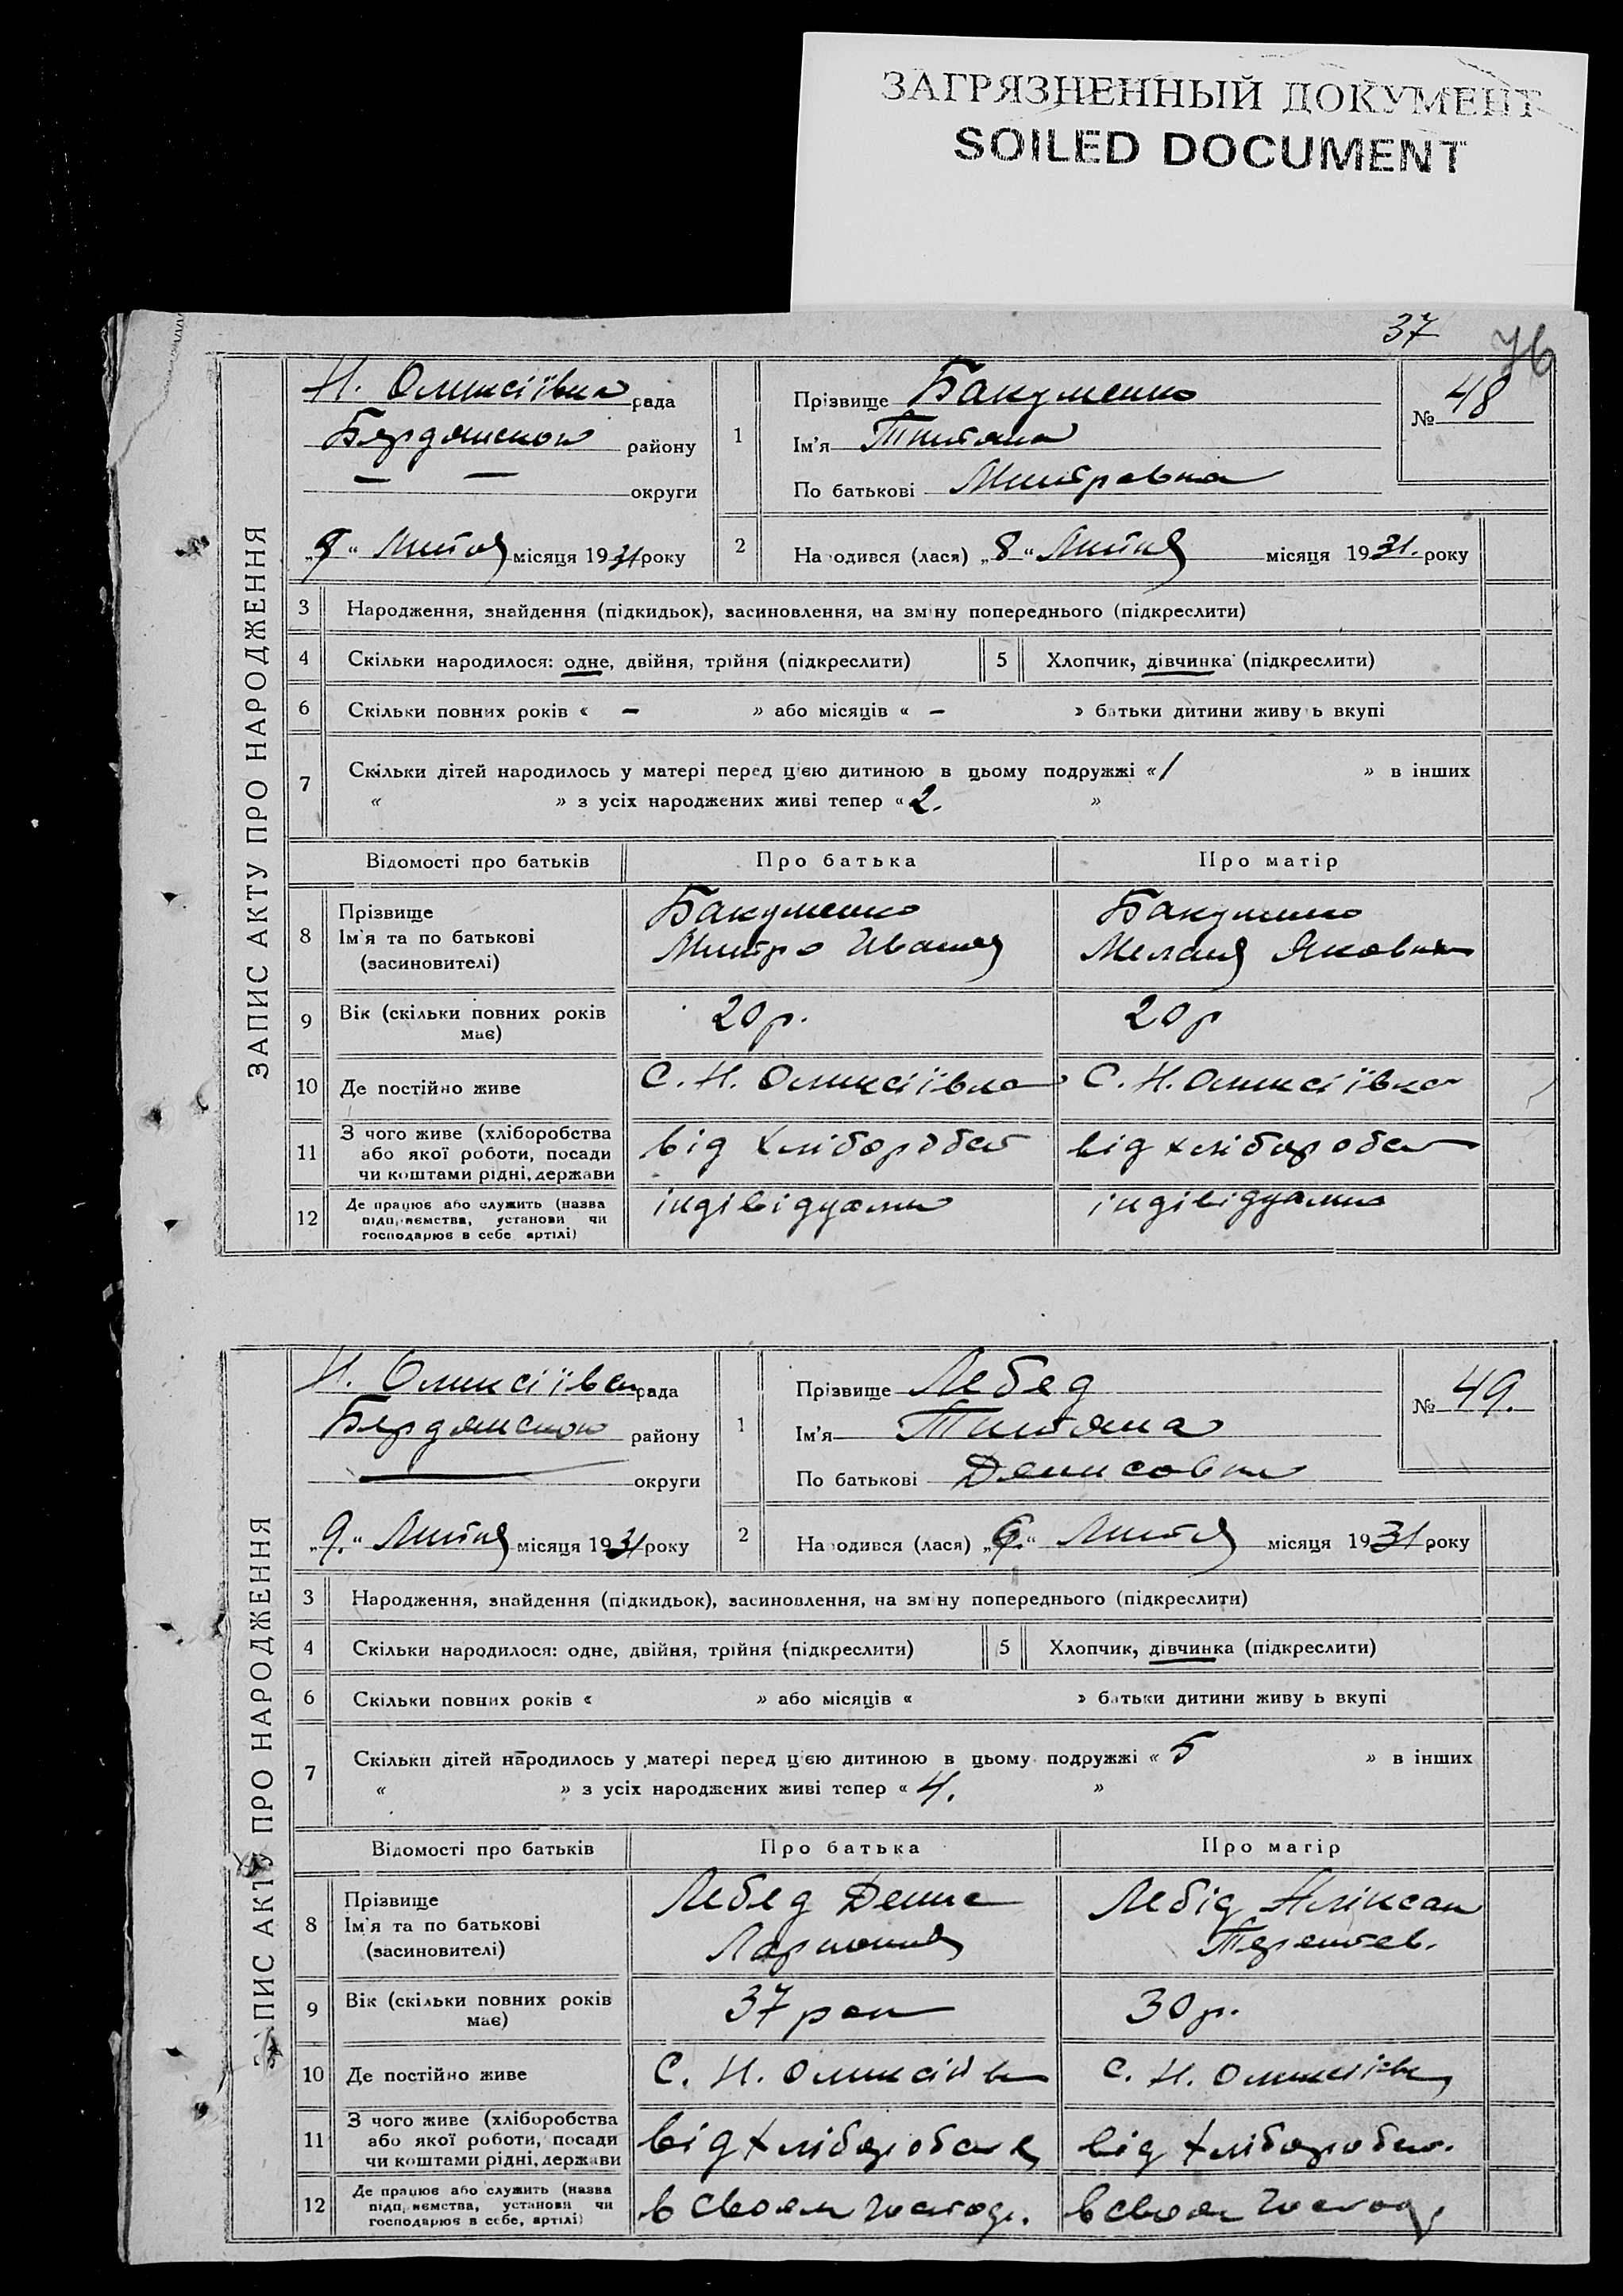 ЗАГРЯЗНЕННЫЙ ДОКУМЕНТ
SOILED DOCUMENT
37
76
ЗАПИС АКТУ ПРО НАРОДЖЕННЯ
Н. Оликсіївка рада
Бердянского району
— — округи
1
Прізвище Бакуменко
Ім'я Титяна
По батькові Митровна
№ 48
„9“ Липня місяця 1931 року
2
Народився (лася) „8“ Липня місяця 1931. року
3 Народження, знайдення (підкидьок), засиновлення, на зміну попереднього (підкреслити)
4 Скільки народилося: одне, двійня, трійня (підкреслити)
5 Хлопчик, дівчинка (підкреслити)
6 Скільки повних років « — » або місяців « — » батьки дитини живуть вкупі
7 Скільки дітей народилось у матері перед цією дитиною в цьому подружжі « 1 » в інших
« » з усіх народжених живі тепер « 2. »
Відомості про батьків Про батька Про матір
8 Прізвище
Ім'я та по батькові
(засиновителі)
Бакуменко
Митро Іванов
Бакуменко
Меланя Яковна
9 Вік (скільки повних років
має)
20 р.
20 р
10 Де постійно живе
С. Н. Оликсіївка
С. Н. Оликсіївка
11 З чого живе (хліборобства
або якої роботи, посади
чи коштами рідні, держави
від хліборобст
від хліборобст
12 Де працює або служить (назва
підприємства, установи чи
господарює в себе артілі)
індівідуально
індівідуально
ЗАПИС АКТУ ПРО НАРОДЖЕННЯ
Н. Оликсіївка рада
Бердянского району
— округи
1
Прізвище Лебед
Ім'я Титяна
По батькові Денисовна
№ 49.
„9.“ Липня місяця 1931 року
2
Народився (лася) „6.“ Липня місяця 1931 року
3 Народження, знайдення (підкидьок), засиновлення, на зміну попереднього (підкреслити)
4 Скільки народилося: одне, двійня, трійня (підкреслити)
5 Хлопчик, дівчинка (підкреслити)
6 Скільки повних років « » або місяців « » батьки дитини живуть вкупі
7 Скільки дітей народилось у матері перед цією дитиною в цьому подружжі « 5 » в інших
« » з усіх народжених живі тепер « 4. »
Відомості про батьків Про батька Про матір
8 Прізвище
Ім'я та по батькові
(засиновителі)
Лебед Денис
Ларионов
Лебід Аліксан
Терентев.
9 Вік (скільки повних років
має)
37 рок
30 р.
10 Де постійно живе
С. Н. Оликсіїв
С. Н. Оликсіїв
11 З чого живе (хліборобства
або якої роботи, посади
чи коштами рідні, держави
від хліборобств
від хліборобст.
12 Де працює або служить (назва
підприємства, установи чи
господарює в себе, артілі)
в своем господ.
в своем господ.